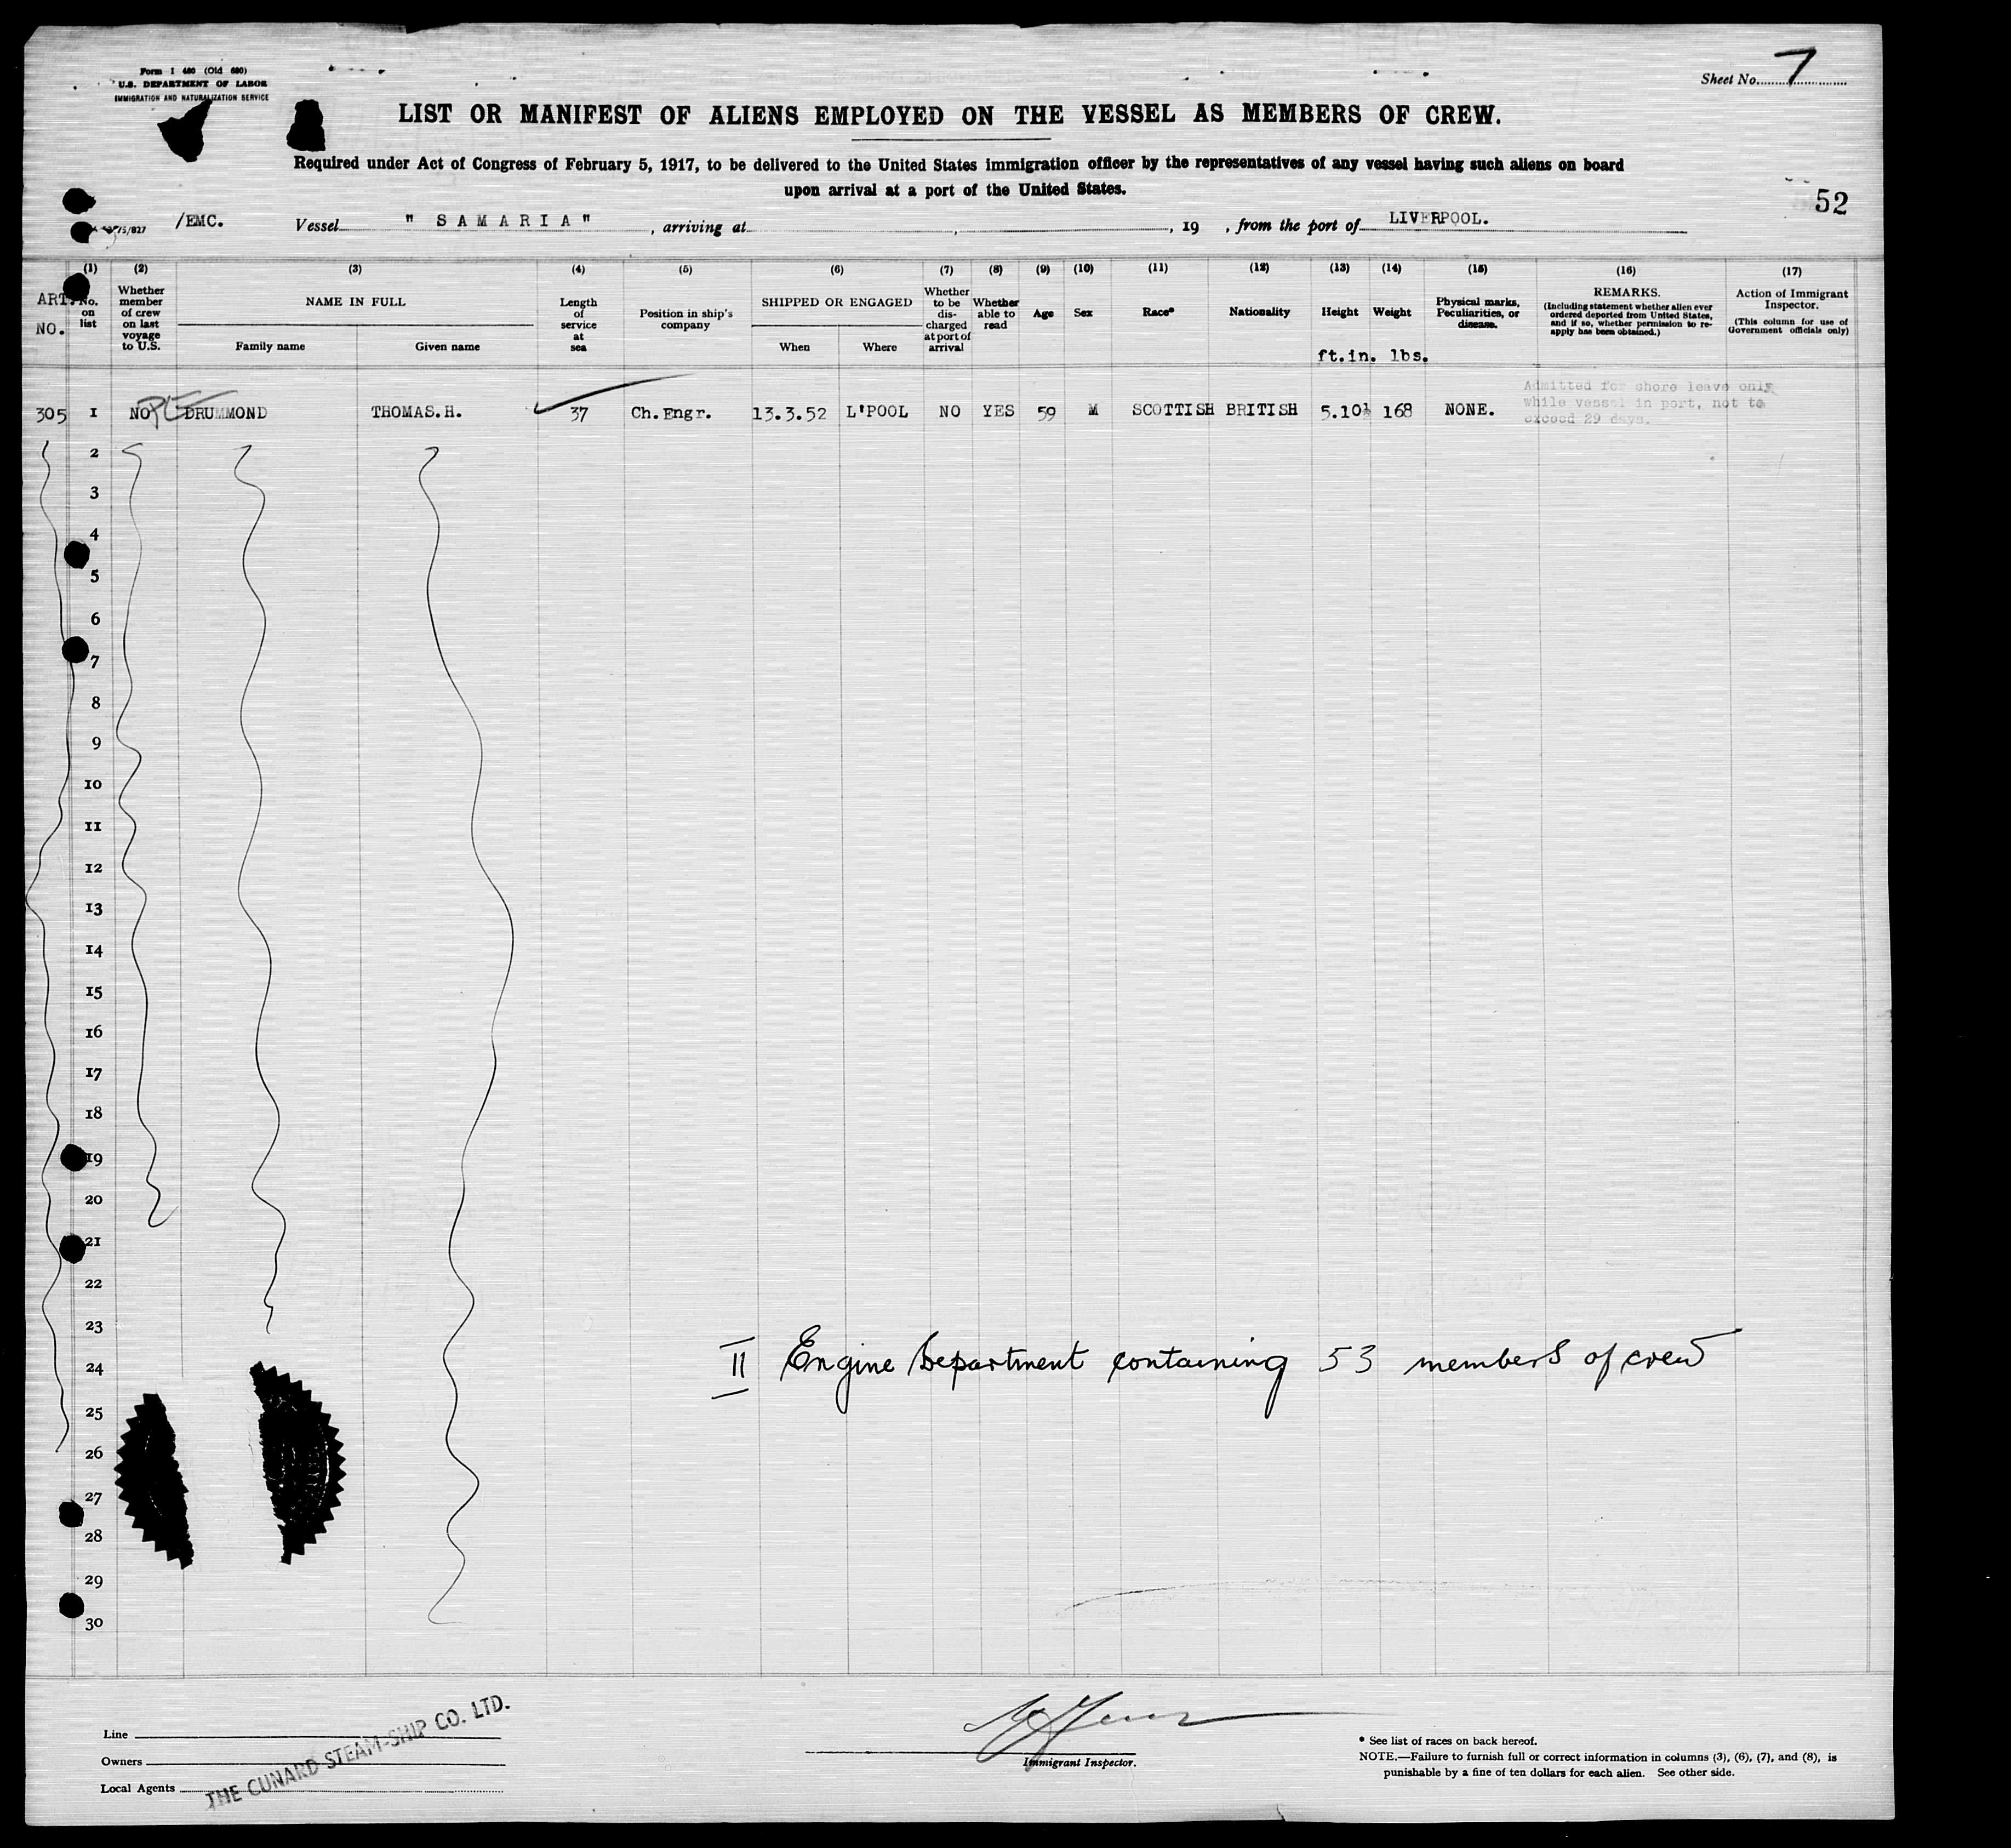 Form I 480 (Old 680)
U.S. DEPARTMENT OF LABOR
IMMIGRATION AND NATURALIZATION SERVICE
Sheet No. 7
LIST OR MANIFEST OF ALIENS EMPLOYED ON THE VESSEL AS MEMBERS OF CREW.
Required under Act of Congress of February 5, 1917, to be delivered to the United States immigration officer by the representatives of any vessel having such aliens on board
upon arrival at a port of the United States.
52
/EMC. Vessel " S A M A R I A " , arriving at , , 19 , from the port of LIVERPOOL.
(1) (2) (3) (4) (5) (6) (7) (8) (9) (10) (11) (12) (13) (14) (15) (16) (17)
ART. NO.
No. on list
Whether member of crew on last voyage to U.S.
NAME IN FULL
Family name Given name
Length of service at sea
Position in ship's company
SHIPPED OR ENGAGED
When Where
Whether to be discharged at port of arrival
Whether able to read
Age
Sex
Race*
Nationality
Height
ft.in.
Weight
lbs.
Physical marks, Peculiarities, or disease.
REMARKS.
(Including statement whether alien ever ordered deported from United States, and if so, whether permission to re-apply has been obtained.)
Action of Immigrant Inspector.
(This column for use of Government officials only)
305 1 NO DRUMMOND THOMAS.H. 37 Ch.Engr. 13.3.52 L'POOL NO YES 59 M SCOTTISH BRITISH 5.10½ 168 NONE.
Admitted for shore leave only
while vessel in port, not to
exceed 29 days.
2
3
4
5
6
7
8
9
10
11
12
13
14
15
16
17
18
19
20
21
22
23
24
II Engine Department containing 53 members of crew
25
26
27
28
29
30
Line
Owners
Local Agents
THE CUNARD STEAM-SHIP CO. LTD.
Immigrant Inspector.
* See list of races on back hereof.
NOTE.—Failure to furnish full or correct information in columns (3), (6), (7), and (8), is
punishable by a fine of ten dollars for each alien. See other side.